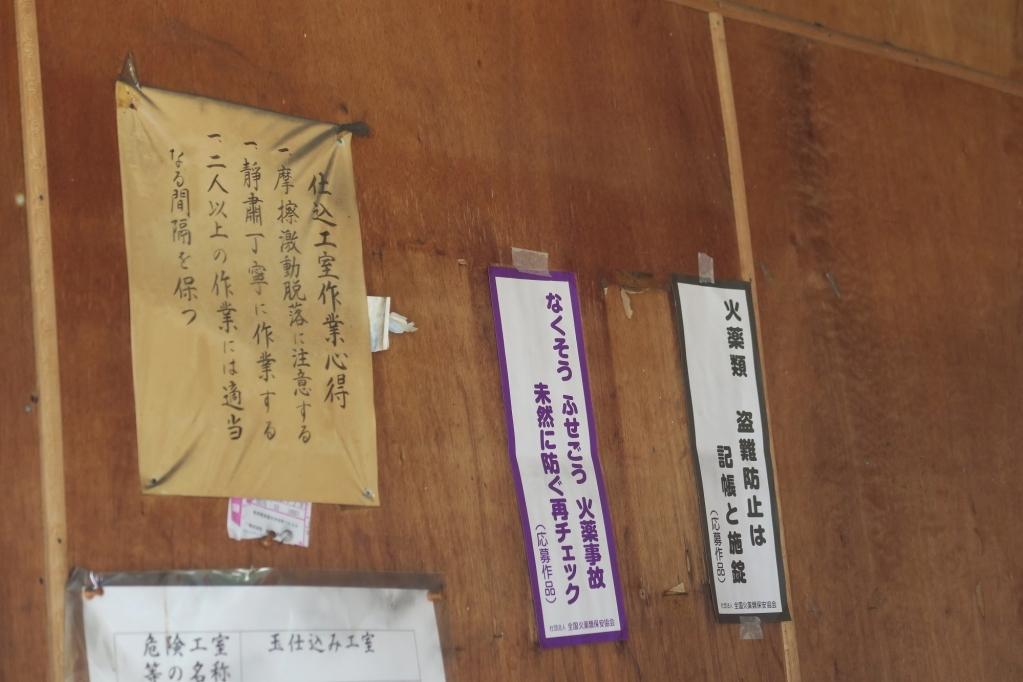 仕込工室作業心得
一、摩擦激動脱落に注意する
一、静粛丁寧に作業する
一、二人以上の作業には適当
なる間隔を保つ
なくそう ふせごう 火薬事故
未然に防ぐ再チェック
(応募作品)
社団法人 全国火薬類保安協会
火薬類 盗難防止は
記帳と施錠
(応募作品)
社団法人 全国火薬類保安協会
危険工室
等の名称
玉仕込み工室